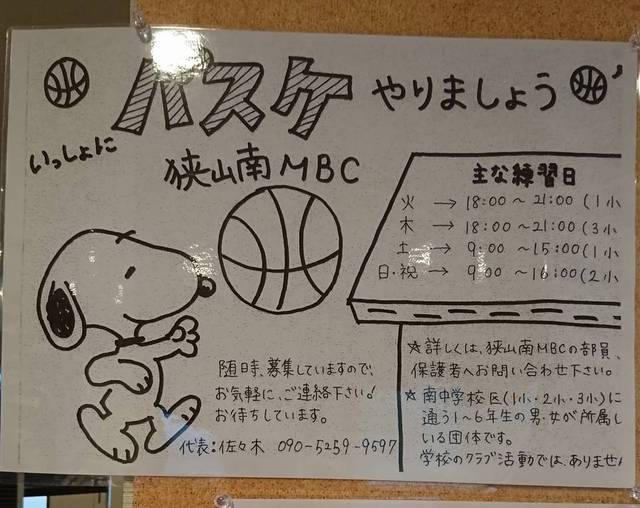 いっしょに
バスケ やりましょう
狭山南MBC
主な練習日
火 → 18:00 〜 21:00 (1小
木 → 18:00 〜 21:00 (3小
土 → 9:00 〜 15:00 (1小
日・祝 → 9:00 〜 16:00 (2小
随時、募集していますので、
お気軽に、ご連絡下さい!
お待ちしています。
代表:佐々木 090-5259-9597
☆詳しくは、狭山南MBCの部員、
保護者へお問い合わせ下さい。
☆南中学校区(1小・2小・3小)に
通う1〜6年生の男・女が所属し
いる団体です。
学校のクラブ活動では、ありませ